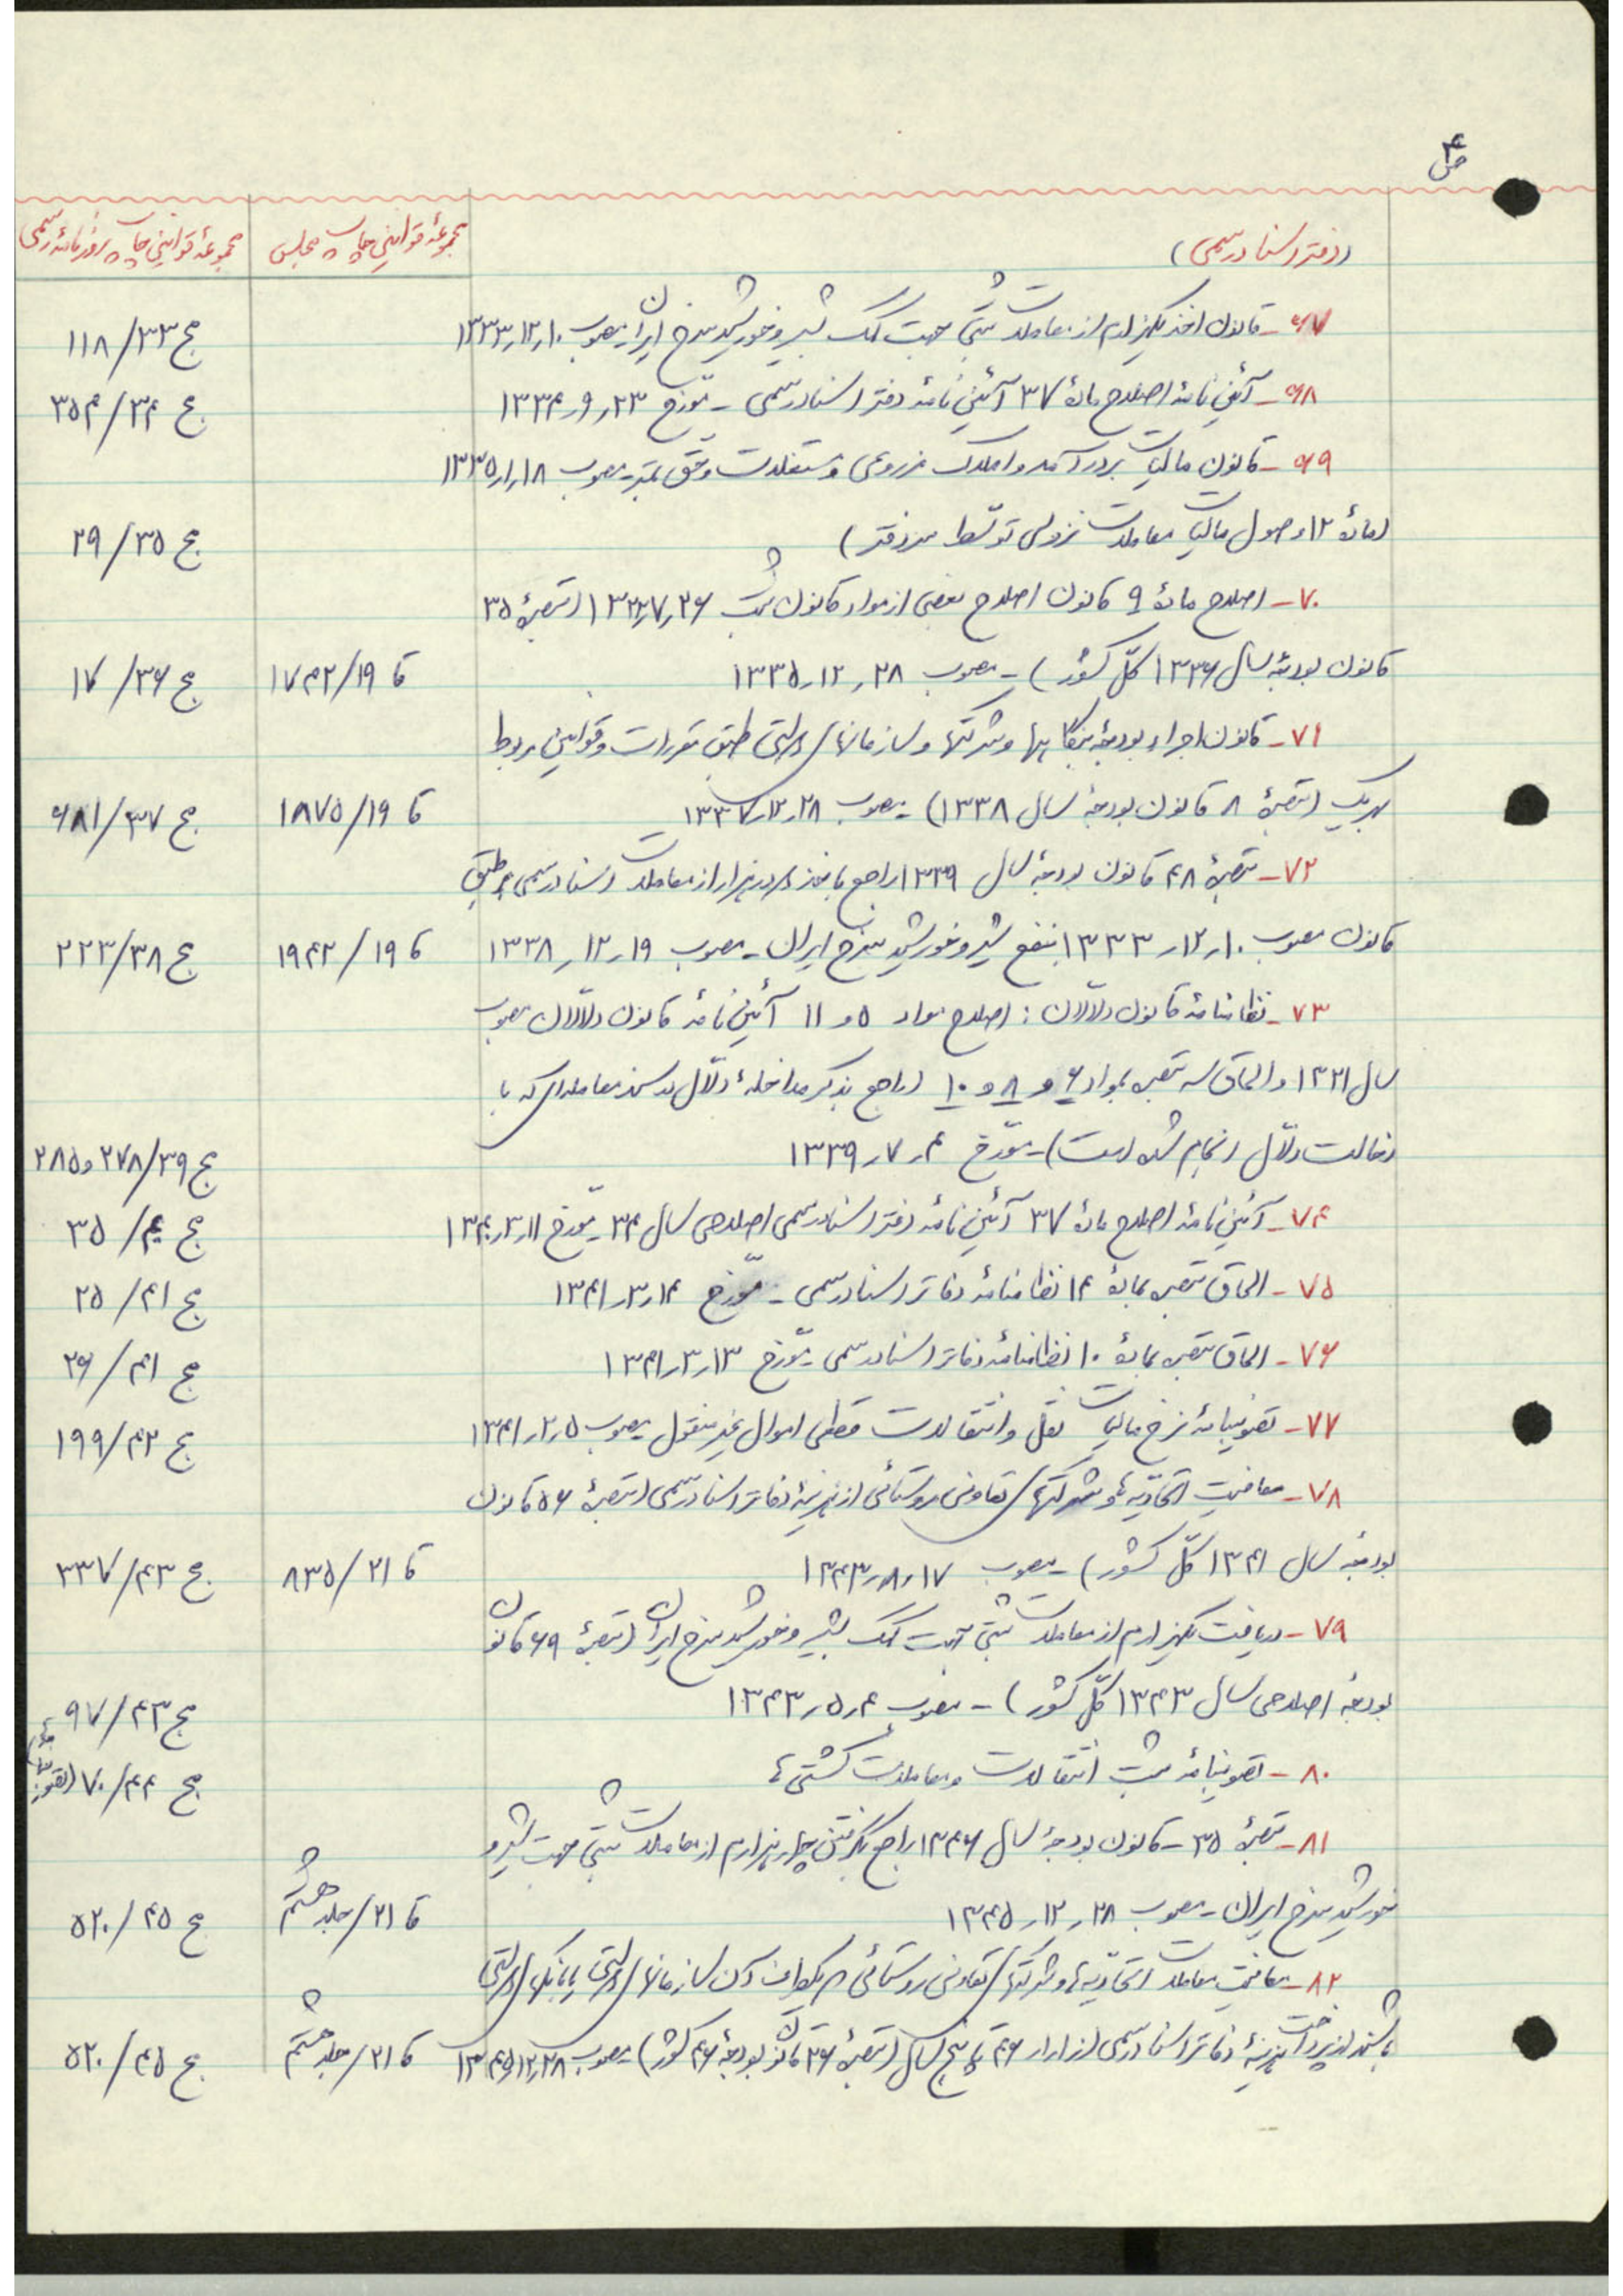 ص ۴
(دفتر اسناد رسمی)
مجموعهٔ قوانین چاپ مجلس
مجموعهٔ قوانین چاپ روزنامهٔ رسمی
۶۷- قانون اخذ یکهزارم از معاملات ثبتی جهت کمک شیر و خورشید سرخ ایران - مصوب ۱۰ر۱۲ر۱۳۳۳
ج ۳۳/۱۱۸
۶۸- آئین نامهٔ اصلاح مادهٔ ۳۷ آئین نامهٔ دفتر اسناد رسمی - مورّخ ۲۳ر۹ر۱۳۳۴
ج ۳۴/۳۵۴
۶۹- قانون مالیات بر درآمد و املاک مزروعی و مستغلات و حق تمبر - مصوب ۱۸ر۱ر۱۳۳۵
(مادهٔ ۱۲ وصول مالیات معاملات نزولی توسّط سردفتر)
ج ۳۵/۲۹
۷۰- اصلاح مادهٔ ۹ قانون اصلاح بعضی از مواد قانون ثبت ۲۶ر۷ر۱۳۲۲ (تبصرهٔ ۳۵
قانون بودجهٔ سال ۱۳۳۶ کلّ کشور) - مصوب ۲۸ر۱۲ر۱۳۳۵
قا ۱۹/۱۷۴۲
ج ۳۶/۱۷
۷۱- قانون اجراء بودجهٔ بنگاهها و شرکتها و سازمانهای دولتی طبق مقررات و قوانین مربوط
بهریک (تبصرهٔ ۸ قانون بودجهٔ سال ۱۳۳۸) - مصوب ۲۸ر۱۲ر۱۳۳۷
قا ۱۹/۱۸۷۵
ج ۳۷/۶۸۱
۷۲- تبصرهٔ ۴۸ قانون بودجهٔ سال ۱۳۳۹ راجع باخذ دو در هزار از معاملات اسناد رسمی بر طبق
قانون مصوب ۱۰ر۱۲ر۱۳۳۳ بنفع شیر و خورشید سرخ ایران - مصوب ۱۹ر۱۲ر۱۳۳۸
قا ۱۹/۱۹۴۲
ج ۳۸/۲۲۳
۷۳- نظامنامهٔ قانون دلاّلان : اصلاح مواد ۵ و ۱۱ آئین نامهٔ قانون دلاّلان مصوب
سال ۱۳۲۱ و الحاق سه تبصره بمواد ۶ و ۸ و ۱۰ (راجع بذکر مداخلهٔ دلاّل در سند معامله‌ای که با
دخالت دلاّل انجام شده است) - مورّخ ۴ر۷ر۱۳۳۹
ج ۳۹/۲۷۸ و ۲۸۵
۷۴- آئین نامهٔ اصلاح مادهٔ ۳۷ آئین نامهٔ دفتر اسناد رسمی اصلاحی سال ۳۴ - مورّخ ۱۱ر۲ر۱۳۴۰
ج ۴۰/۳۵
۷۵- الحاق تبصره بمادهٔ ۱۴ نظامنامهٔ دفاتر اسناد رسمی - مورّخ ۱۴ر۳ر۱۳۴۱
ج ۴۱/۲۵
۷۶- الحاق تبصره بمادهٔ ۱۰ نظامنامهٔ دفاتر اسناد رسمی - مورّخ ۱۳ر۳ر۱۳۴۱
ج ۴۱/۲۶
۷۷- تصویبنامهٔ نرخ مالیات نقل و انتقالات قطعی اموال غیرمنقول - مصوب ۵ر۲ر۱۳۴۱
ج ۴۲/۱۹۹
۷۸- معافیت اتحادیّه‌ها و شرکتهای تعاونی روستائی از هزینهٔ دفاتر اسناد رسمی (تبصرهٔ ۵۶ قانون
بودجهٔ سال ۱۳۴۱ کلّ کشور) - مصوب ۱۷ر۸ر۱۳۴۳
قا ۲۱/۸۳۵
ج ۴۳/۳۳۷
۷۹- دریافت یکهزارم از معاملات ثبتی جهت کمک بشیر و خورشید سرخ ایران (تبصرهٔ ۶۹ قانون
بودجهٔ اصلاحی سال ۱۳۴۳ کلّ کشور) - مصوب ۴ر۵ر۱۳۴۳
ج ۴۳/۹۷
۸۰- تصویبنامهٔ ثبت انتقالات و معاملات کشتی‌ها
ج ۴۴/۷۰
۸۱- تبصرهٔ ۳۵ - قانون بودجهٔ سال ۱۳۴۶ راجع بگرفتن چهار هزارم از معاملات ثبتی جهت شیر و
خورشید سرخ ایران - مصوب ۲۸ر۱۲ر۱۳۴۵
قا ۲۱/جلد هشتم
ج ۴۵/۵۲۰
۸۲- معافیت معاملات اتحادیّه‌ها و شرکتهای تعاونی روستائی که یکطرف آن سازمانهای دولتی یا بانکهای دولتی
باشند از پرداخت هزینهٔ دفاتر اسناد رسمی از اول ۴۶ تا پنج سال (تبصرهٔ ۳۶ قانون بودجهٔ ۴۶ کشور) - مصوب ۲۸ر۱۲ر۱۳۴۵
قا ۲۱/جلد هشتم
ج ۴۵/۵۲۰